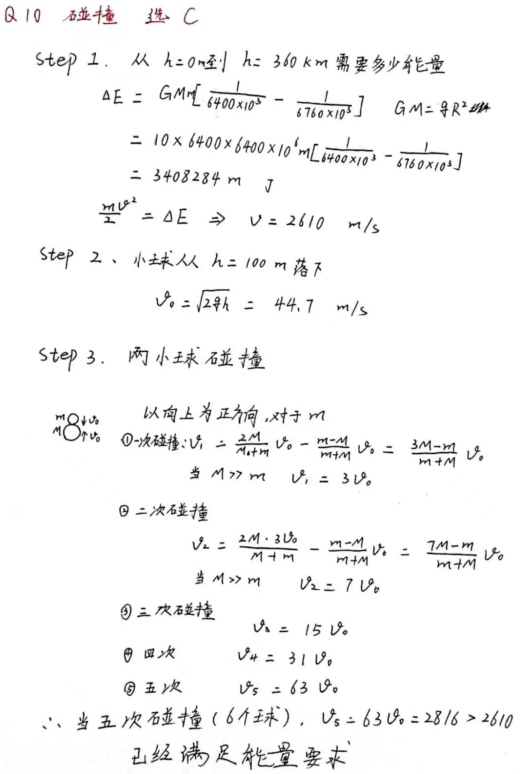 Q10 碰撞 选 C
Step 1. 从 h=0m到 h=360km需要多少能量
ΔE = GMm[1/6400×10³ - 1/6760×10³] GM=gR²
= 10×6400×6400×10⁶m[1/6400×10³ - 1/6760×10³]
= 3408284 m J
mv²/2 = ΔE ⇒ v=2610 m/s
Step 2、小球从 h=100m落下
v₀=√2gh = 44.7 m/s
Step 3. 两小球碰撞
以向上为正方向,对于m
m ↓v₀
M ↑v₀
①一次碰撞:v₁ = 2M/M+m v₀ - m-M/m+M v₀ = 3M-m/m+M v₀
当 M>>m v₁=3v₀
②二次碰撞
v₂ = 2M·3v₀/M+m - m-M/m+M v₀ = 7M-m/m+M v₀
当 M>>m v₂=7v₀
③三次碰撞
v₃ = 15v₀
④四次 v₄=31v₀
⑤五次 v₅=63v₀
∴ 当五次碰撞(6个球), v₅=63v₀=2816>2610
已经满足能量要求